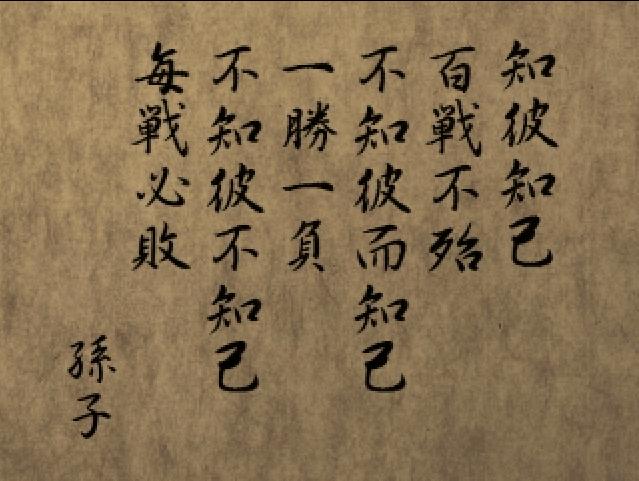 知彼知己
百戰不殆
不知彼而知己
一勝一負
不知彼不知己
每戰必敗
孫子